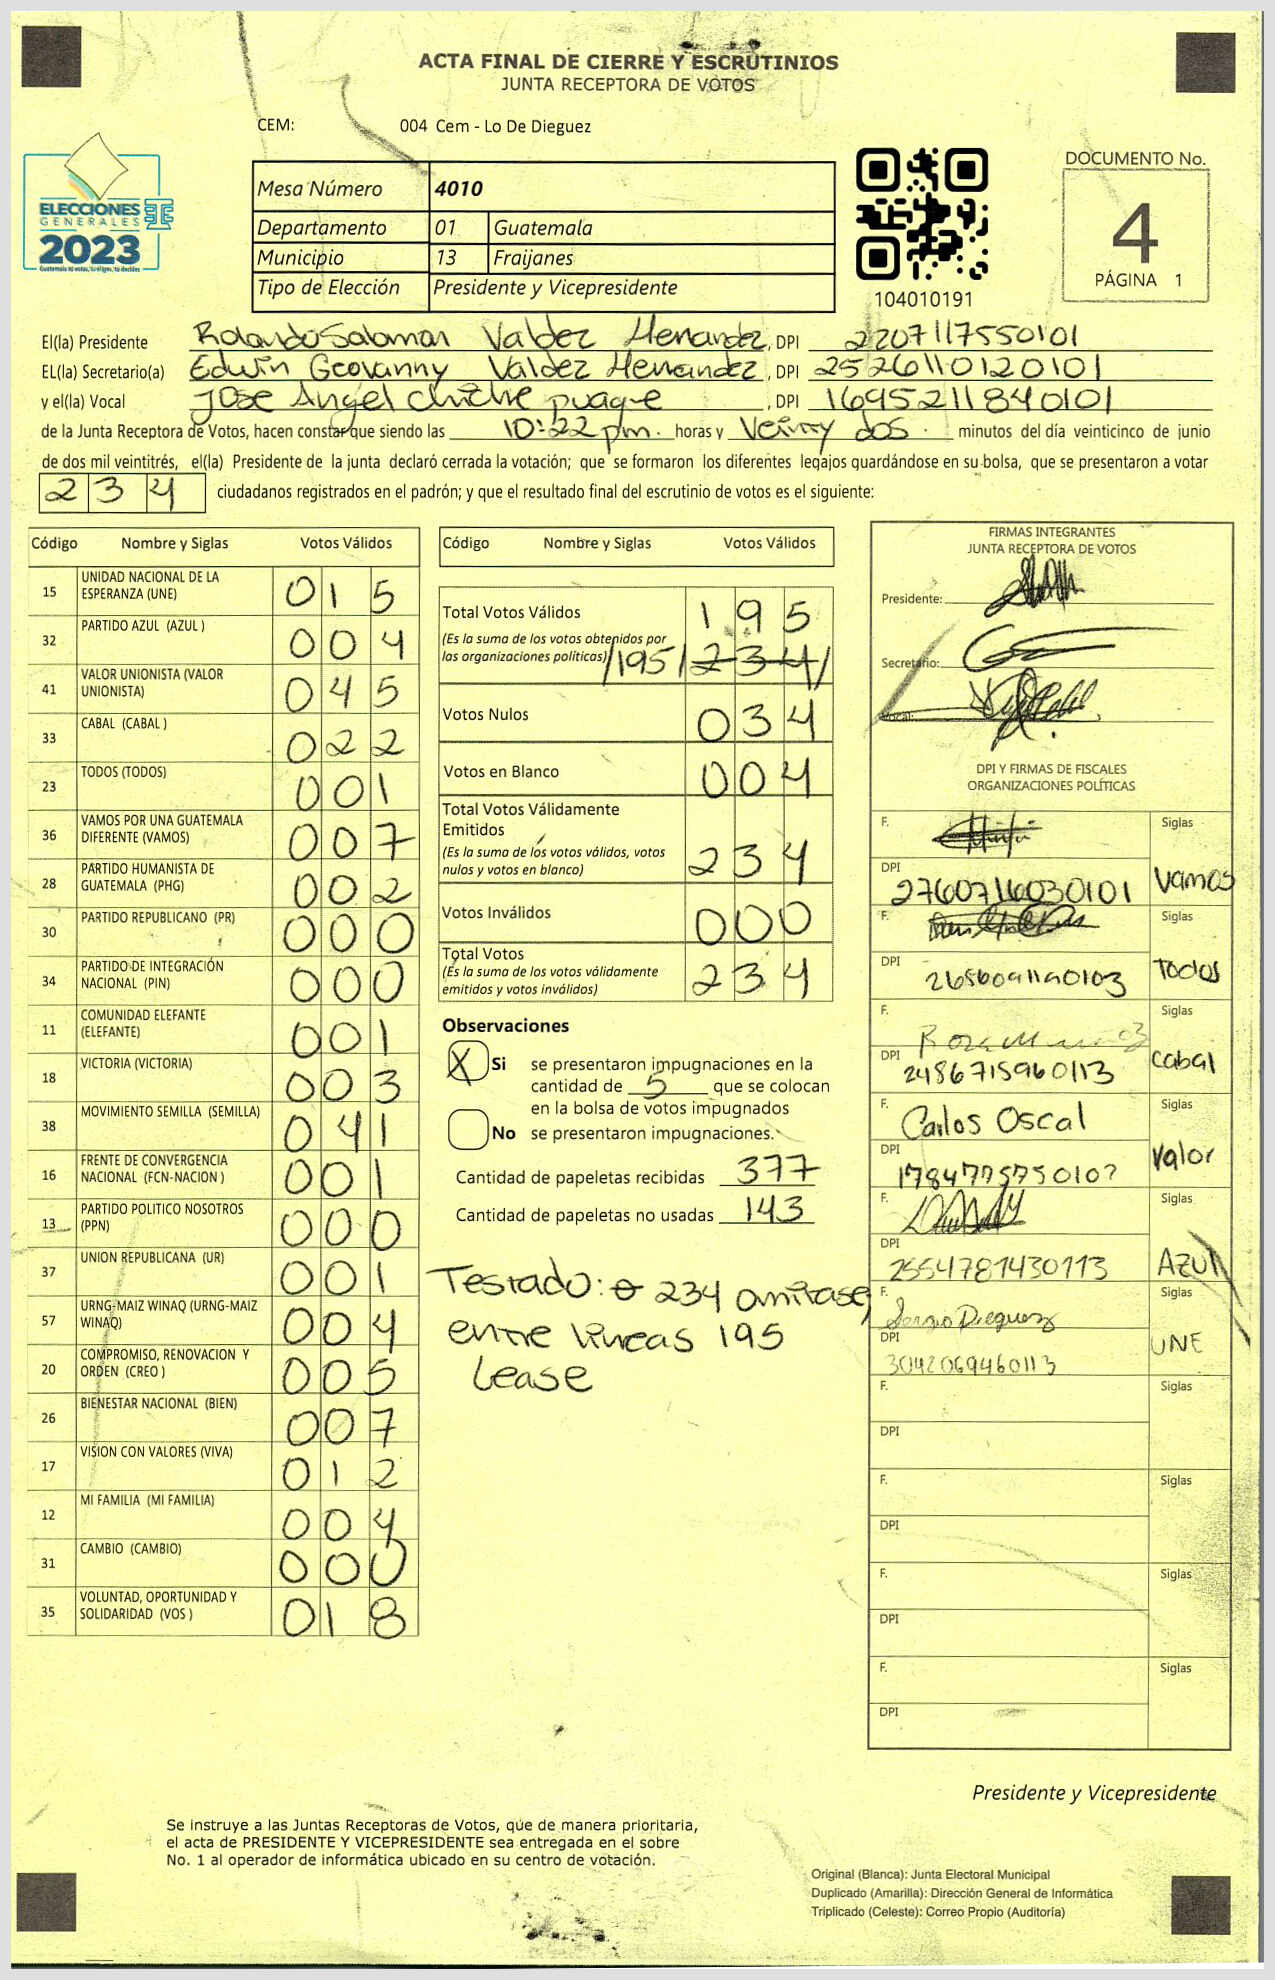 ACTA FINAL DE CIERRE Y ESCRUTINIOS
JUNTA RECEPTORA DE VOTOS
CEM: 004 Cem - Lo De Dieguez
ELECCIONES
GENERALES
2023
Mesa Número 4010
Departamento 01 Guatemala
Municipio 13 Fraijanes
Tipo de Elección Presidente y Vicepresidente
104010191
DOCUMENTO No.
4
PÁGINA 1
El(la) Presidente Rolando Salomon Valdez Hernandez, DPI 2207117550101
EL(la) Secretario(a) Edwin Geovanny Valdez Hernandez, DPI 2526110120101
y el(la) Vocal Jose Angel, DPI 1695211840101
de la Junta Receptora de Votos, hacen constar que siendo las 10:22 pm. horas y dos minutos del día veinticinco de junio
de dos mil veintitrés, el(la) Presidente de la junta declaró cerrada la votación; que se formaron los diferentes legajos guardándose en su bolsa, que se presentaron a votar
234 ciudadanos registrados en el padrón; y que el resultado final del escrutinio de votos es el siguiente:
Código Nombre y Siglas Votos Válidos
15 UNIDAD NACIONAL DE LA ESPERANZA (UNE) 015
32 PARTIDO AZUL (AZUL ) 004
41 VALOR UNIONISTA (VALOR UNIONISTA) 045
33 CABAL (CABAL ) 022
23 TODOS (TODOS) 001
36 VAMOS POR UNA GUATEMALA DIFERENTE (VAMOS) 007
28 PARTIDO HUMANISTA DE GUATEMALA (PHG) 002
30 PARTIDO REPUBLICANO (PR) 000
34 PARTIDO DE INTEGRACIÓN NACIONAL (PIN) 000
11 COMUNIDAD ELEFANTE (ELEFANTE) 001
18 VICTORIA (VICTORIA) 003
38 MOVIMIENTO SEMILLA (SEMILLA) 041
16 FRENTE DE CONVERGENCIA NACIONAL (FCN-NACION ) 001
13 PARTIDO POLITICO NOSOTROS (PPN) 000
37 UNION REPUBLICANA (UR) 001
57 URNG-MAIZ WINAQ (URNG-MAIZ WINAQ) 004
20 COMPROMISO, RENOVACION Y ORDEN (CREO ) 005
26 BIENESTAR NACIONAL (BIEN) 007
17 VISION CON VALORES (VIVA) 012
12 MI FAMILIA (MI FAMILIA) 004
31 CAMBIO (CAMBIO) 000
35 VOLUNTAD, OPORTUNIDAD Y SOLIDARIDAD (VOS ) 018
Código Nombre y Siglas Votos Válidos
Total Votos Válidos 195
(Es la suma de los votos obtenidos por
las organizaciones políticas) /195/ 234/
Votos Nulos 034
Votos en Blanco 004
Total Votos Válidamente
Emitidos
(Es la suma de los votos válidos, votos
nulos y votos en blanco) 234
Votos Inválidos 000
Total Votos
(Es la suma de los votos válidamente
emitidos y votos inválidos) 234
Observaciones
X Si se presentaron impugnaciones en la
cantidad de 5 que se colocan
en la bolsa de votos impugnados
No se presentaron impugnaciones.
Cantidad de papeletas recibidas 377
Cantidad de papeletas no usadas 143
Testado: 234 omitase,
entre lineas 195
Lease
FIRMAS INTEGRANTES
JUNTA RECEPTORA DE VOTOS
Presidente:
Secretario:
Vocal:
DPI Y FIRMAS DE FISCALES
ORGANIZACIONES POLÍTICAS
F. Siglas
DPI 2760716030101 Vamos
F. Siglas
DPI Todos
F. Rosa Siglas
DPI 2486715960113 Cabal
F. Carlos Oscal Siglas
DPI Valor
F. Siglas
DPI 2554781430113 AZUL
F. Sergio Dieguez Siglas
DPI 3042069460113 UNE
F. Siglas
DPI
F. Siglas
DPI
F. Siglas
DPI
F. Siglas
DPI
Presidente y Vicepresidente
Se instruye a las Juntas Receptoras de Votos, que de manera prioritaria,
el acta de PRESIDENTE Y VICEPRESIDENTE sea entregada en el sobre
No. 1 al operador de informática ubicado en su centro de votación.
Original (Blanca): Junta Electoral Municipal
Duplicado (Amarilla): Dirección General de Informática
Triplicado (Celeste): Correo Propio (Auditoría)